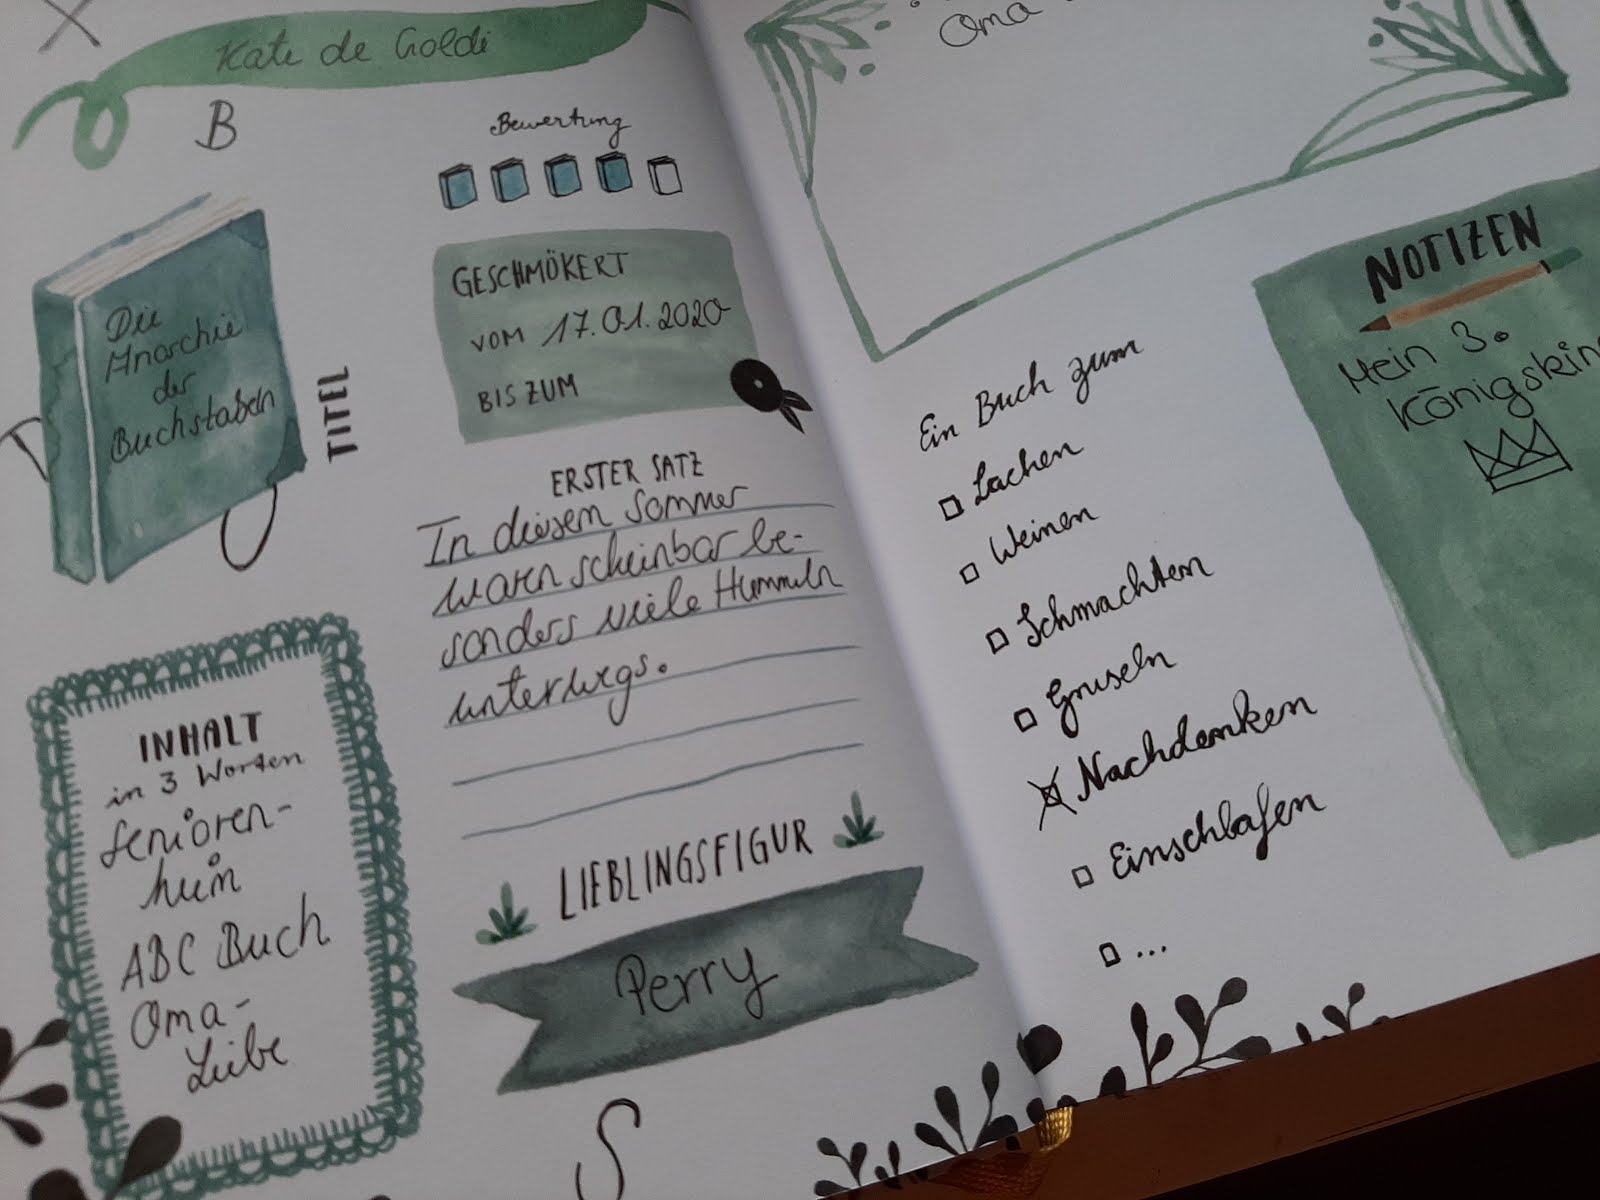 Kate de Goldi
B
Bewertung
Die
Anarchie
der
Buchstaben
TITEL
GESCHMÖKERT
VOM 17.01.2020
BIS ZUM
ERSTER SATZ
In diesem Sommer
waren scheinbar be-
sonders viele Hummeln
unterwegs.
INHALT
in 3 Worten
Senioren-
heim
ABC Buch
Oma-
Liebe
LIEBLINGSFIGUR
Perry
S
Oma
Ein Buch zum
Lachen
Weinen
Schmachten
Gruseln
Nachdenken
Einschlafen
...
NOTIZEN
Mein 3.
Königskin